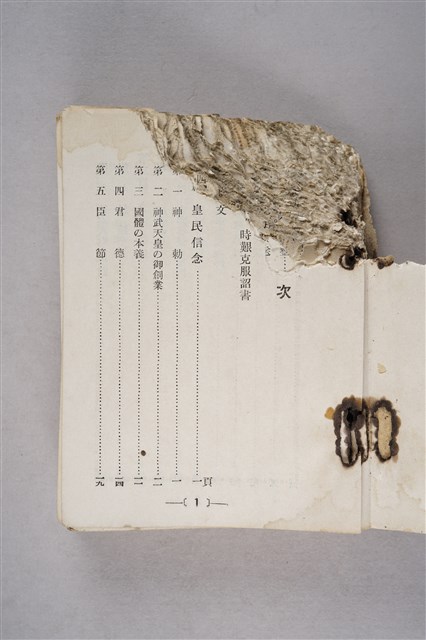 次
時艱克服詔書
文
皇民信念……一頁
一 神 勅……一
第二 神武天皇の御創業……二
第三 國體の本義……一一
第四 君 德……一四
第五 臣 節……一九
—( 1 )—